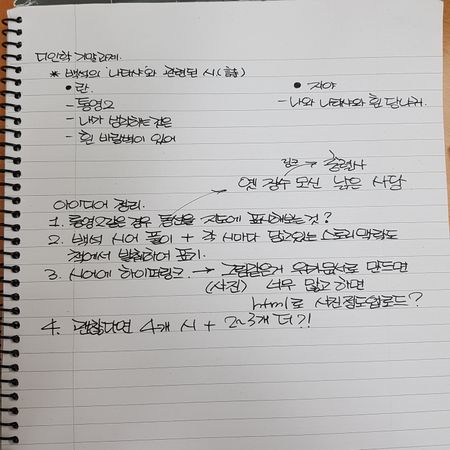 디인학 기말과제.
* 백석의 '나타샤'와 관련된 시(詩)
• 란.
- 통영2
- 내가 생각하는 것은
- 흰 바람벽이 있어
• 자야
- 나와 나타샤와 흰 당나귀.
링크 충렬사
옛 장수 모신 낡은 사당
아이디어 정리.
1. 통영2같은 경우 동선을 지도에 표시해보는 것?
2. 백석 시어 풀이 + 각 시마다 담고있는 스토리 맥락도
책에서 발췌하여 표기.
3. 시어에 하이퍼링크. → 그림같은게
(사진) 너무 많고 하면
html로 사진정도 업로드?
4. 괜찮다면 4개 시 + 2~3개 더?!